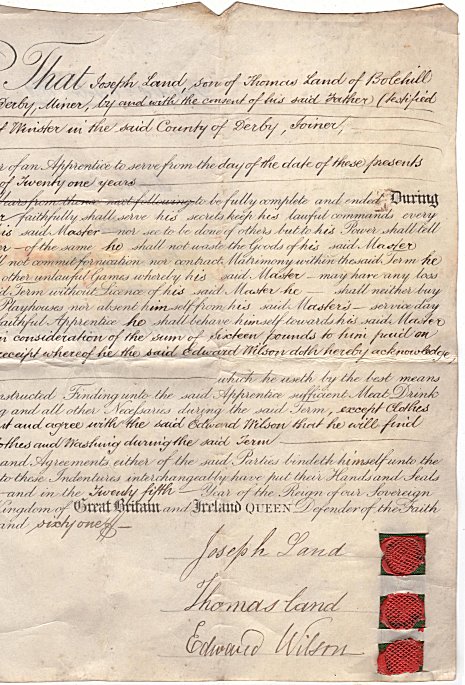 That Joseph Land, son of Thomas Land of Bolehill
Derby Miner, by and with the consent of his said Father (testified
of Winster in the said County of Derby, Joiner,
r of an Apprentice to serve from the day of the date of these presents
of Twenty one years
Years from thence next following to be fully complete and ended During
r faithfully shall serve his secrets keep his lawful commands every
his said Master nor see to be done of others but to his Power shall tell
er of the same he shall not waste the Goods of his said Master
ll not commit fornication nor contract Matrimony within the said Term he
other unlawful Games whereby his said Master may have any loss
id Term without Licence of his said Master he shall neither buy
Playhouses nor absent himself from his said Master's service day
aithful Apprentice he shall behave himself towards his said Master
in consideration of the sum of sixteen pounds to him paid on
receipt whereof he the said Edward Wilson doth hereby acknowledge,
which he useth by the best means
nstructed Finding unto the said Apprentice sufficient Meat Drink
g and all other Necessaries during the said Term, except Clothes
nt and agree with the said Edward Wilson that he will find
lothes and Washing during the said Term
and Agreements either of the said Parties bindeth himself unto the
to these Indentures interchangeably have put their Hands and Seals
and in the Twenty fifth Year of the Reign of our Sovereign
Kingdom of Great Britain and Ireland QUEEN Defender of the Faith
and sixty one
Joseph Land
Thomas Land
Edward Wilson